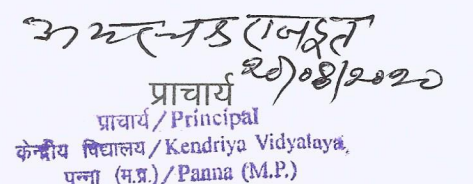 20/08/2020
प्राचार्य
प्राचार्य/Principal
केन्द्रीय विद्यालय/Kendriya Vidyalaya,
पन्ना (म.प्र.)/Panna (M.P.)